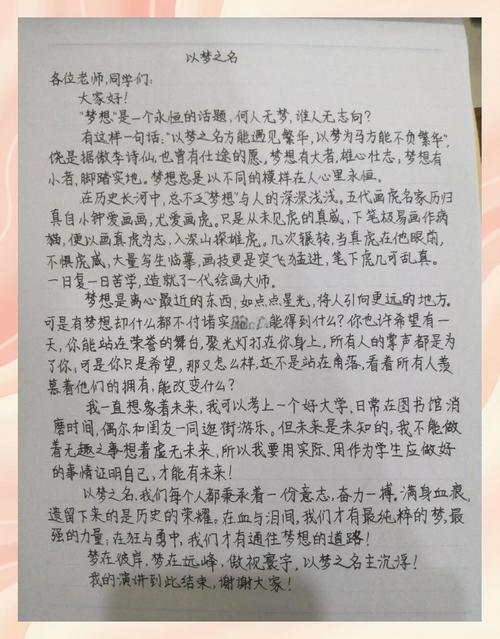 以梦之名
各位老师,同学们:
大家好!
“梦想”是一个永恒的话题,何人无梦,谁人无志向?
有这样一句话:“以梦之名方能遇见繁华,以梦为马方能不负繁华”,
饶是据傲李诗仙,也曾有仕途的愿。梦想有大者,雄心壮志;梦想有
小者,脚踏实地。梦想总是以不同的模样在人心里永恒。
在历史长河中,总不乏“梦想”与人的深深浅浅。五代画虎名家历归
真自小钟爱画画,尤爱画虎。只是从未见虎的真威,下笔极易画作病
猫,便以画真虎为志,入深山探雄虎。几次辗转,当真虎在他眼前,
不惧虎威,大量写生临摹,画技更是突飞猛进,笔下虎几可乱真。
一日复一日苦学,造就了一代绘画大师。
梦想是离心最近的东西,如点点星光,将人引向更远的地方。
可是有梦想却什么都不付诸实 能得到什么?你也许希望有一
天,你能站在荣誉的舞台,聚光灯打在你身上,所有人的掌声都是为
了你,可是你只是希望,那又怎么样,还不是站在角落,看着所有人羡
慕着他们的拥有,能改变什么?
我一直想象着未来,我可以考上一个好大学,日常在图书馆消
磨时间,偶尔和闺友一同逛街游乐。但未来是未知的,我不能做
着无趣之事想着虚无未来,所以我要用实际、用作为学生应做好
的事情证明自己,才能有未来!
以梦之名,我们每个人都秉承着一份意志,奋力一搏,满身血痕,
遗留下来的是历史的荣耀。在血与泪间,我们才有最纯粹的梦,最
强的力量;在狂与勇中,我们才有通往梦想的道路!
梦在彼岸,梦在远峰,傲视寰宇,以梦之名主沉浮!
我的演讲到此结束,谢谢大家!